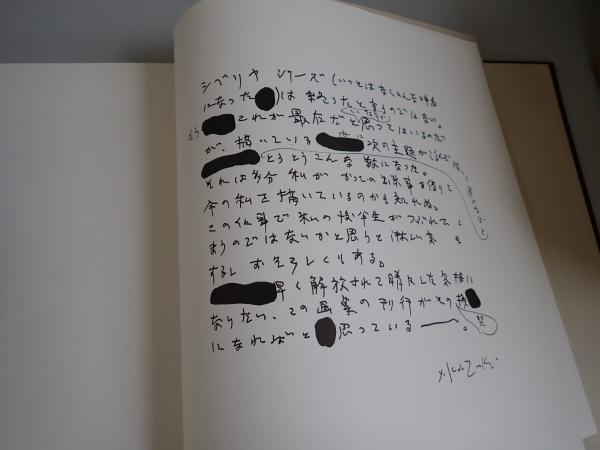 シベリヤ シリーズ (いつとはなくそんな呼名
になった)は 終ったと言うのではない。
もう これが最后だと思ってはいるのだ
が、描いている 内に 次の主題が浮んで
とうとうこんな数になった。
それは多分 私が かつての出来事を借りて
今の私を描いているのかも知れぬ。
この仕事で私の後半生がつぶれてし
まうのではないかと思うと淋しい気も
するし ずえろしくもある。
早く解放されて勝たした気持に
なりたい、この画集の刊行がその 契
になればと 思っている ー。